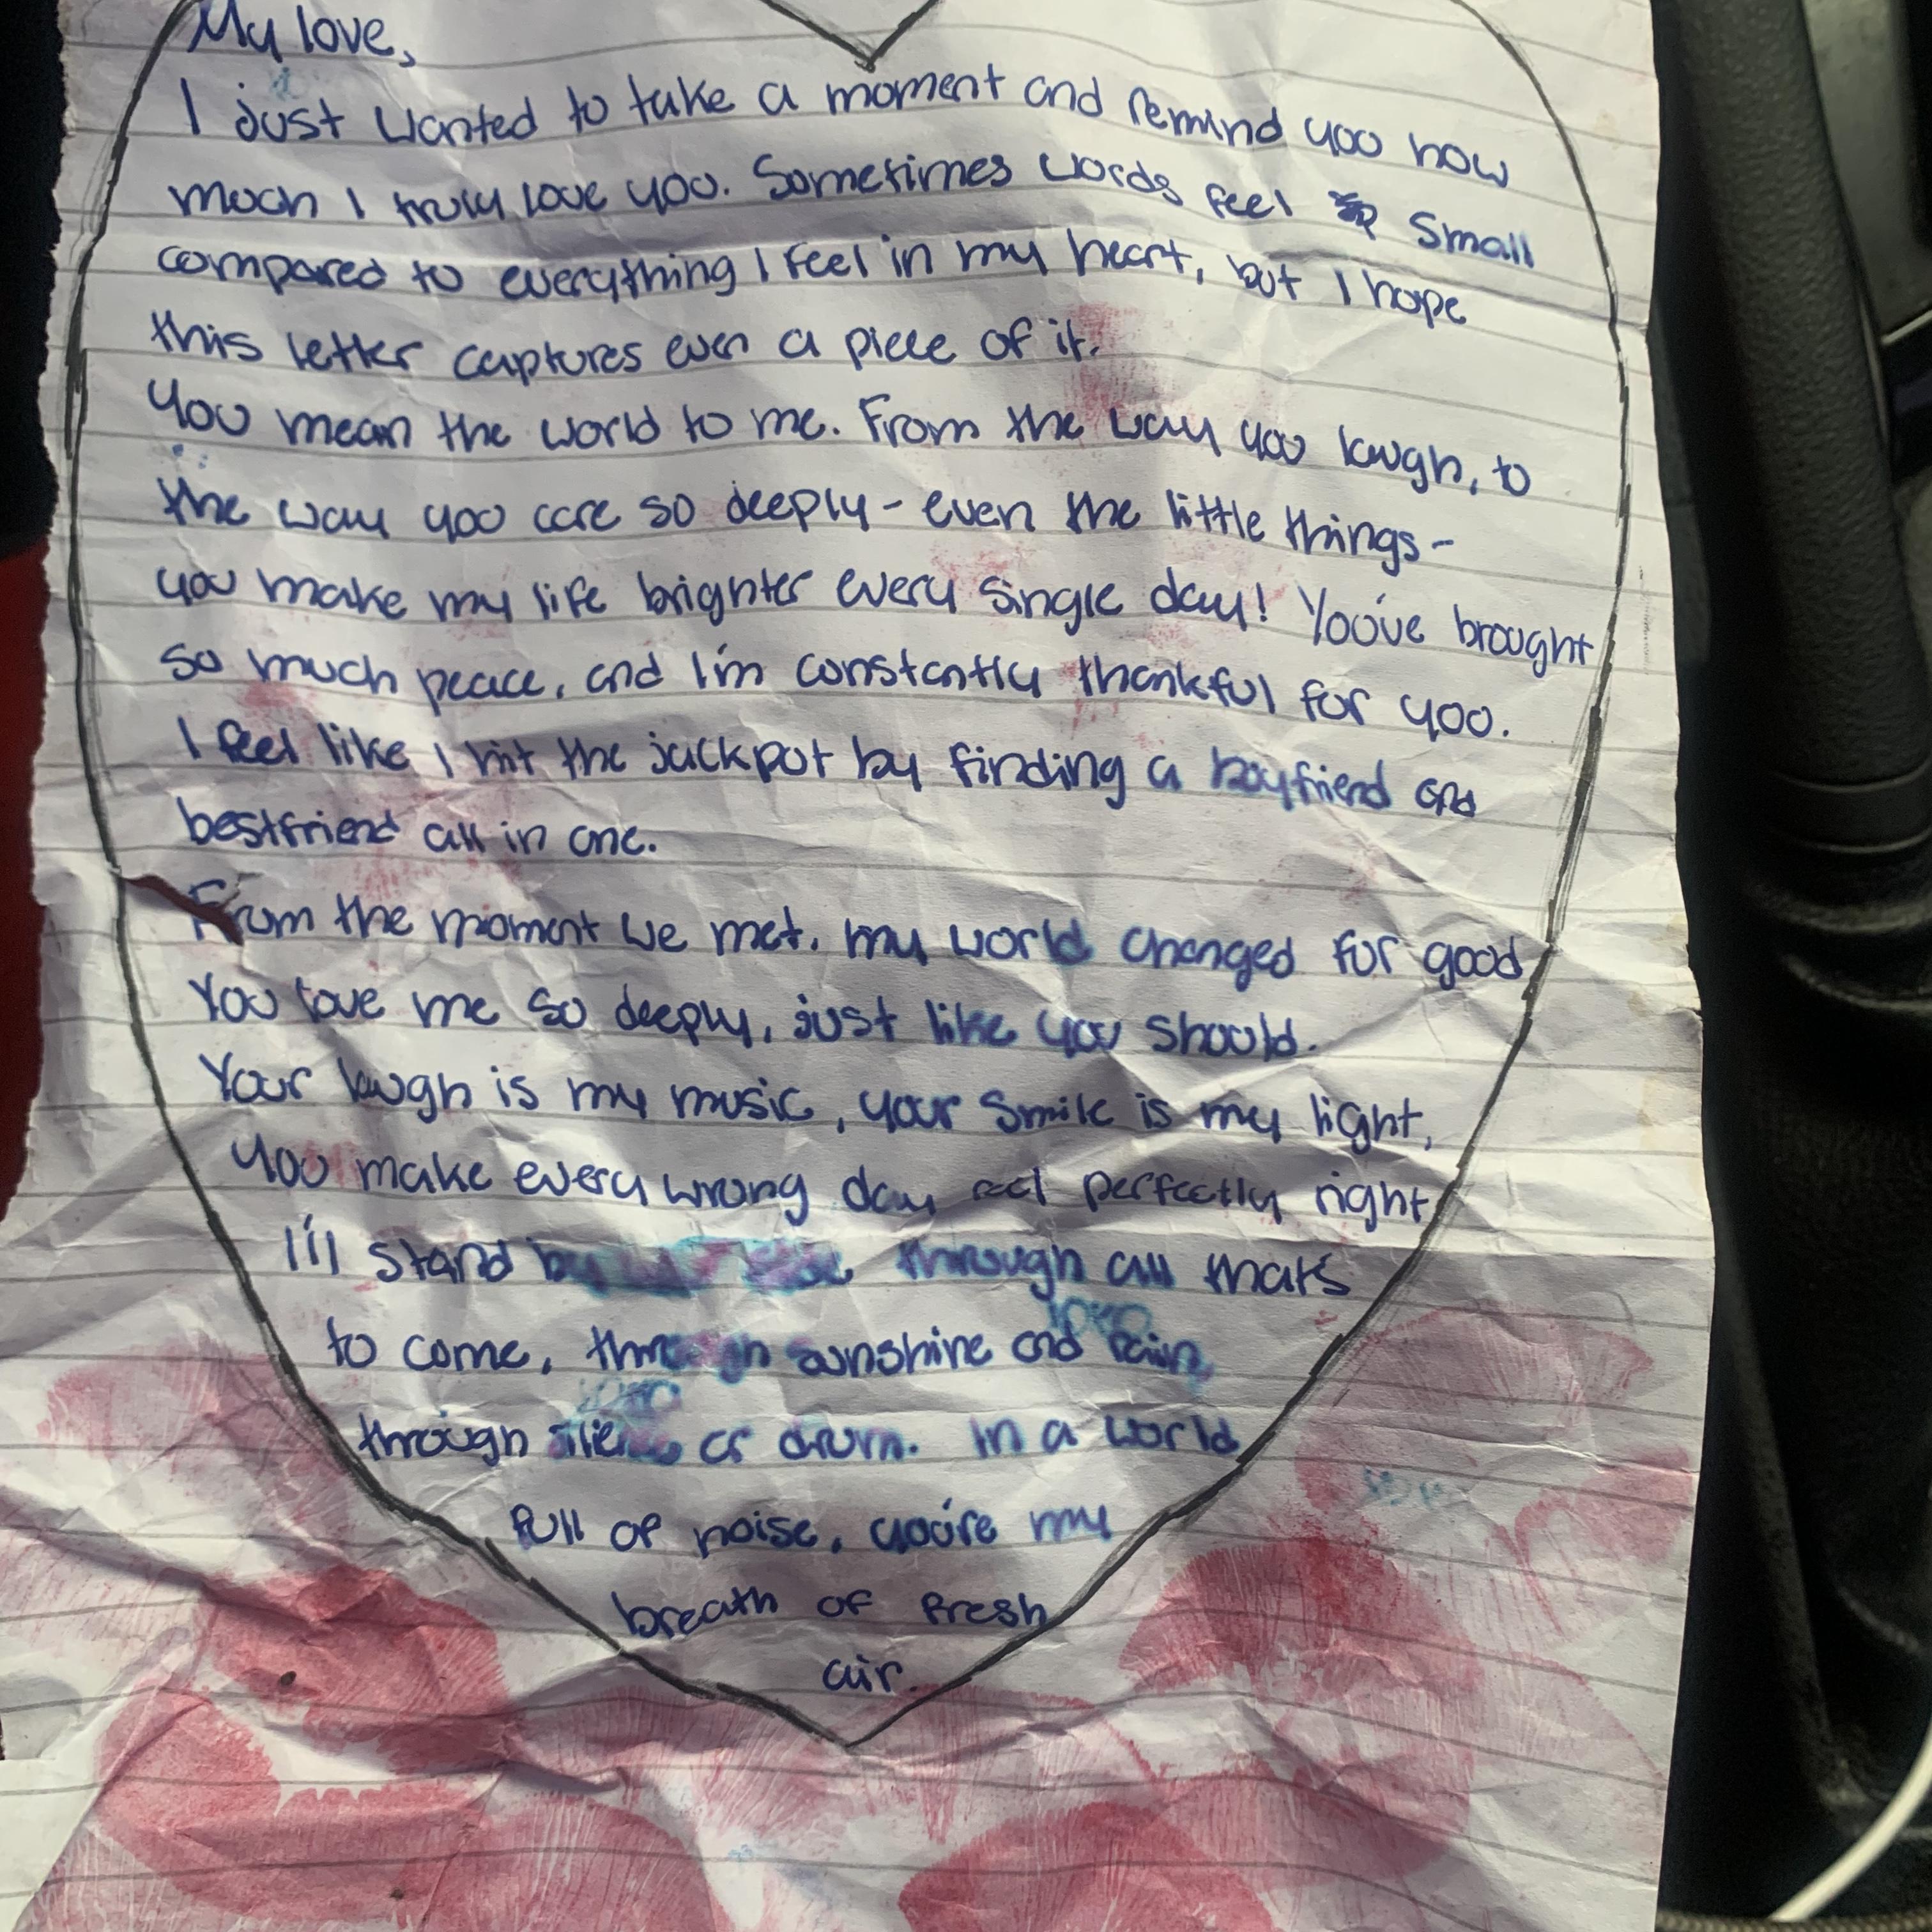 My love,
I just wanted to take a moment and remind you how
much I truly love you. Sometimes words feel small
compared to everything I feel in my heart, but I hope
this letter captures even a piece of it.
You mean the world to me. From the way you laugh, to
the way you care so deeply - even the little things -
you make my life brighter every single day! You've brought
so much peace, and I'm constantly thankful for you.
I feel like I hit the jackpot by finding a boyfriend and
bestfriend all in one.
From the moment we met, my world changed for good
You love me so deeply, just like you should.
Your laugh is my music, your smile is my light,
You make every wrong day feel perfectly right
I'll stand by through all that's
to come, through sunshine and rain,
through silence or drum. In a world
full of noise, you're my
breath of fresh
air.